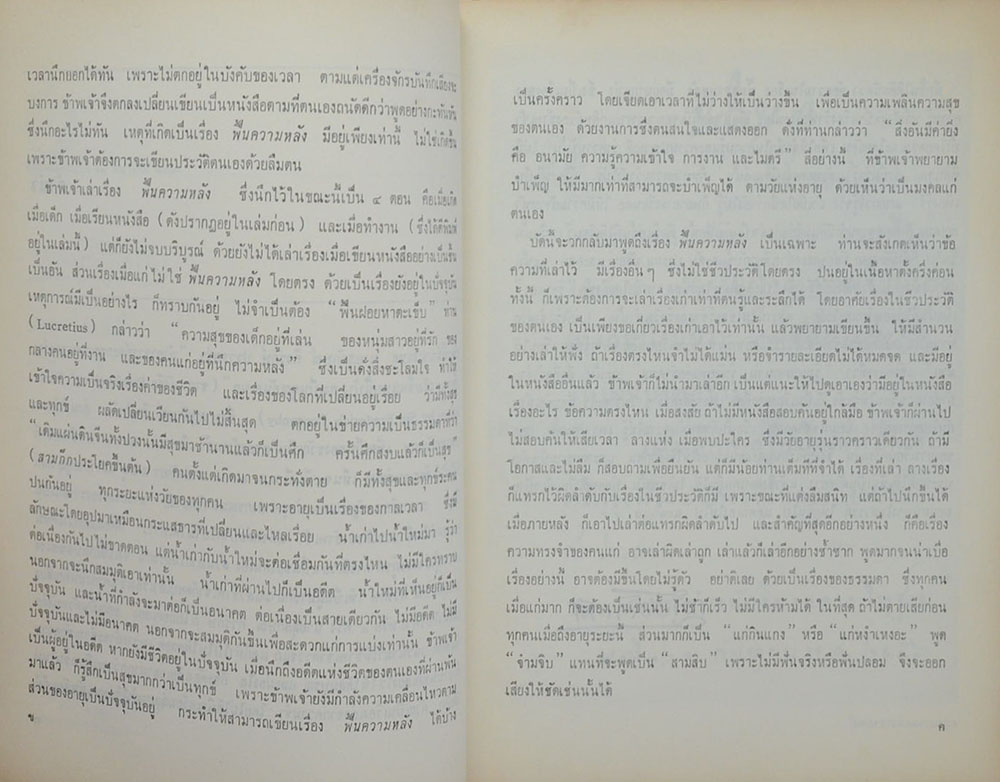 เวลานึกออกได้ทัน เพราะไม่ตกอยู่ในบังคับของเวลา ตามแต่เครื่องจักรบันทึกเสียงจะ
บงการ ข้าพเจ้าจึงตกลงเปลี่ยนเขียนเป็นหนังสือตามที่ตนเองถนัดดีกว่าพูดอย่างกะทันหัน
ซึ่งนึกอะไรไม่ทัน เหตุที่เกิดเป็นเรื่อง ฟื้นความหลัง มีอยู่เพียงเท่านี้ ไม่ใช่เกิดขึ้น
เพราะข้าพเจ้าต้องการจะเขียนประวัติตนเองด้วยลืมตน
ข้าพเจ้าเล่าเรื่อง ฟื้นความหลัง ซึ่งนึกไว้ในขณะนี้เป็น ๔ ตอน คือเมื่อเกิด
เมื่อเด็ก เมื่อเรียนหนังสือ (ดังปรากฏอยู่ในเล่มก่อน) และเมื่อทำงาน (ซึ่งได้ตีพิมพ์
อยู่ในเล่มนี้) แต่ก็ยังไม่จบบริบูรณ์ ด้วยยังไม่ได้เล่าเรื่องเมื่อเขียนหนังสืออย่างเป็นชิ้น
เป็นอัน ส่วนเรื่องเมื่อแก่ ไม่ใช่ ฟื้นความหลัง โดยตรง ด้วยเป็นเรื่องยังอยู่ในปัจจุบัน
เหตุการณ์มีเป็นอย่างไร ก็ทราบกันอยู่ ไม่จำเป็นต้อง “ฟื้นฝอยหาตะเข็บ” ท่าน
(Lucretius) กล่าวว่า “ความสุขของเด็กอยู่ที่เล่น ของหนุ่มสาวอยู่ที่รัก ของ
กลางคนอยู่ที่งาน และของคนแก่อยู่ที่นึกความหลัง” ซึ่งเป็นดั่งสิ่งชะโลมใจ ทำให้
เข้าใจความเป็นจริงเรื่องค่าของชีวิต และเรื่องของโลกที่เปลี่ยนอยู่เรื่อย ว่ามีทั้งสุข
และทุกข์ ผลัดเปลี่ยนเวียนกันไปไม่สิ้นสุด ตกอยู่ในข่ายความเป็นธรรมดาที่ว่า
“เดิมแผ่นดินจีนทั้งปวงนั้นมีสุขมาช้านานแล้วก็เป็นศึก ครั้นศึกสงบแล้วก็เป็นสุข”
(สามก๊กประโยคขึ้นต้น) คนตั้งแต่เกิดมาจนกระทั่งตาย ก็มีทั้งสุขและทุกข์ระคน
ปนกันอยู่ ทุกระยะแห่งวัยของทุกคน เพราะอายุเป็นเรื่องของกาลเวลา ซึ่งมี
ลักษณะโดยอุปมาเหมือนกระแสธารที่เปลี่ยนและไหลเรื่อย น้ำเก่าไปน้ำใหม่มา รู้ว่า
ต่อเนื่องกันไปไม่ขาดตอน แต่น้ำเก่ากับน้ำใหม่จะต่อเชื่อมกันที่ตรงไหน ไม่มีใครทราบ
นอกจากจะนึกสมมุติเอาเท่านั้น น้ำเก่าที่ผ่านไปก็เป็นอดีต น้ำใหม่ที่เห็นอยู่ก็เป็น
ปัจจุบัน และน้ำที่กำลังจะมาต่อก็เป็นอนาคต ต่อเนื่องเป็นสายเดียวกัน ไม่มีอดีต ไม่มี
ปัจจุบันและไม่มีอนาคต นอกจากจะสมมุติกันขึ้นเพื่อสะดวกแก่การแบ่งเท่านั้น ข้าพเจ้า
เป็นผู้อยู่ในอดีต หากยังมีชีวิตอยู่ในปัจจุบัน เมื่อนึกถึงอดีตแห่งชีวิตของตนเองที่ผ่านพ้น
มาแล้ว ก็รู้สึกเป็นสุขมากกว่าเป็นทุกข์ เพราะข้าพเจ้ายังมีกำลังความเคลื่อนไหวตาม
ส่วนของอายุเป็นปัจจุบันอยู่ กระทำให้สามารถเขียนเรื่อง ฟื้นความหลัง ได้บ้าง
ข
เป็นครั้งคราว โดยเจียดเอาเวลาที่ไม่ว่างให้เป็นว่างขึ้น เพื่อเป็นความเพลินความสุข
ของตนเอง ด้วยงานการซึ่งตนสนใจและแสดงออก ดั่งที่ท่านกล่าวว่า “สิ่งอันมีค่ายิ่ง
คือ อนามัย ความรู้ความเข้าใจ การงาน และไมตรี” สี่อย่างนี้ ที่ข้าพเจ้าพยายาม
บำเพ็ญ ให้มีมากเท่าที่สามารถจะบำเพ็ญได้ ตามวัยแห่งอายุ ด้วยเห็นว่าเป็นมงคลแก่
ตนเอง
บัดนี้จะวกกลับมาพูดถึงเรื่อง ฟื้นความหลัง เป็นเฉพาะ ท่านจะสังเกตเห็นว่าข้อ
ความที่เล่าไว้ มีเรื่องอื่นๆ ซึ่งไม่ใช่ชีวประวัติโดยตรง ปนอยู่ในเนื้อหาตั้งครึ่งค่อน
ทั้งนี้ ก็เพราะต้องการจะเล่าเรื่องเก่าเท่าที่ตนรู้และระลึกได้ โดยอาศัยเรื่องในชีวประวัติ
ของตนเอง เป็นเพียงขอเกี่ยวเรื่องเก่าเอาไว้เท่านั้น แล้วพยายามเขียนขึ้น ให้มีสำนวน
อย่างเล่าให้ฟัง ถ้าเรื่องตรงไหนจำไม่ได้แม่น หรือจำรายละเอียดไม่ได้หมดจด และมีอยู่
ในหนังสืออื่นแล้ว ข้าพเจ้าก็ไม่นำมาเล่าอีก เป็นแต่แนะให้ไปดูเอาเองว่ามีอยู่ในหนังสือ
เรื่องอะไร ข้อความตรงไหน เมื่อสงสัย ถ้าไม่มีหนังสือสอบค้นอยู่ใกล้มือ ข้าพเจ้าก็ผ่านไป
ไม่สอบค้นให้เสียเวลา ลางแห่ง เมื่อพบปะใคร ซึ่งมีวัยอายุรุ่นราวคราวเดียวกัน ถ้ามี
โอกาสและไม่ลืม ก็สอบถามเพื่อยืนยัน แต่ก็มีน้อยท่านเต็มทีที่จำได้ เรื่องที่เล่า ลางเรื่อง
ก็แทรกไว้ผิดลำดับกับเรื่องในชีวประวัติก็มี เพราะขณะที่แต่งลืมสนิท แต่ถ้าไปนึกขึ้นได้
เมื่อภายหลัง ก็เอาไปเล่าต่อแทรกผิดลำดับไป และสำคัญที่สุดอีกอย่างหนึ่ง ก็คือเรื่อง
ความทรงจำของคนแก่ อาจเล่าผิดเล่าถูก เล่าแล้วก็เล่าอีกอย่างซ้ำซาก พูดมากจนน่าเบื่อ
เรื่องอย่างนี้ อาจต้องมีขึ้นโดยไม่รู้ตัว อย่าติเลย ด้วยเป็นเรื่องของธรรมดา ซึ่งทุกคน
เมื่อแก่มาก ก็จะต้องเป็นเช่นนั้น ไม่ช้าก็เร็ว ไม่มีใครห้ามได้ ในที่สุด ถ้าไม่ตายเสียก่อน
ทุกคนเมื่อถึงอายุระยะนี้ ส่วนมากก็เป็น “แก่กินแกง” หรือ “แก่หงำเหงอะ” พูด
“จำมจิบ” แทนที่จะพูดเป็น “สามสิบ” เพราะไม่มีฟันจริงหรือฟันปลอม จึงจะออก
เสียงให้ชัดเช่นนั้นได้
ค